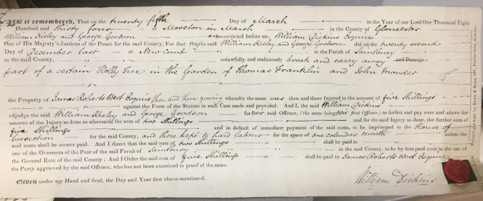 Be it remembered, That on the twenty fifth Day of March in the Year of our Lord One Thousand Eight
Hundred and thirty four at Moreton in Marsh in the County of Gloucester
William Keeley and George Goodson convicted before me, William Dickins Esquire
One of His Majesty's Justices of the Peace for the said County, For that they the said William Keeley and George Goodson did on the twenty second
Day of December last at New Comb in the Parish of Saintbury
in the said County, unlawfully and maliciously break and carry away and Damage
part of a certain Holly Tree in the Garden of Thomas Franklin and John
the Property of James Roberts West Esquire then and there growing whereby the same was then and there Injured to the amount of five Shillings
against the Form of the Statute in such Case made and provided. And I, the said William Dickins
adjudge the said William Keeley and George Goodson for said Offence, (the same being first Offence) to forfeit and pay over and above the
amount of the Injury so done as aforesaid the sum of two shillings and for the said Injury so done, the further sum of
five Shillings and in default of immediate payment of the said sums, to be imprisoned in the House of
Correction for the said County, and there kept to hard labour for the space of one Calendar Month unless the
said sums shall be sooner paid. And I direct that the said sum of two shillings shall be paid to
one of the Overseers of the Poor of the Parish of Saintbury in the said County, to be by him paid over to the use of
the General Rate of the said County; And I Order the said sum of five Shillings shall be paid to James Roberts West Esquire
the Party aggrieved by the said Offence, who has not been examined in proof of the same.
Given under my Hand and Seal, the Day and Year first above-mentioned.
William Dickins